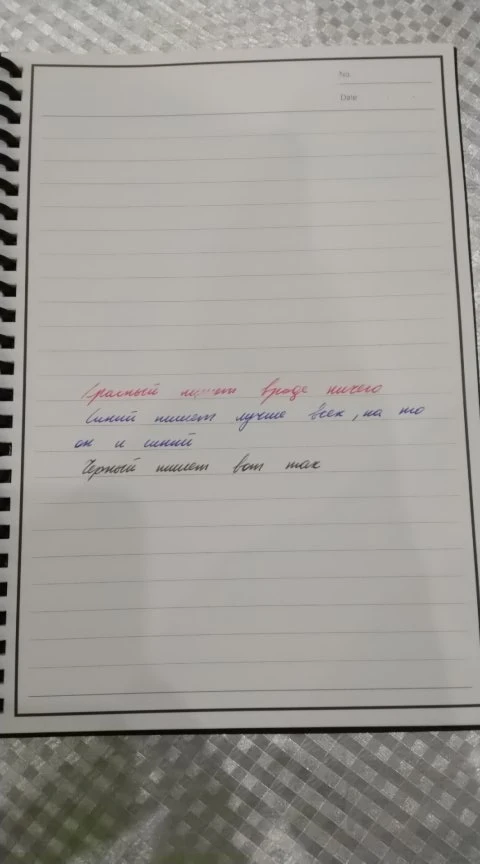 No.
Date
Красный пишет вроде ничего
Синий пишет лучше всех, на то
он и синий
Черный пишет вот так